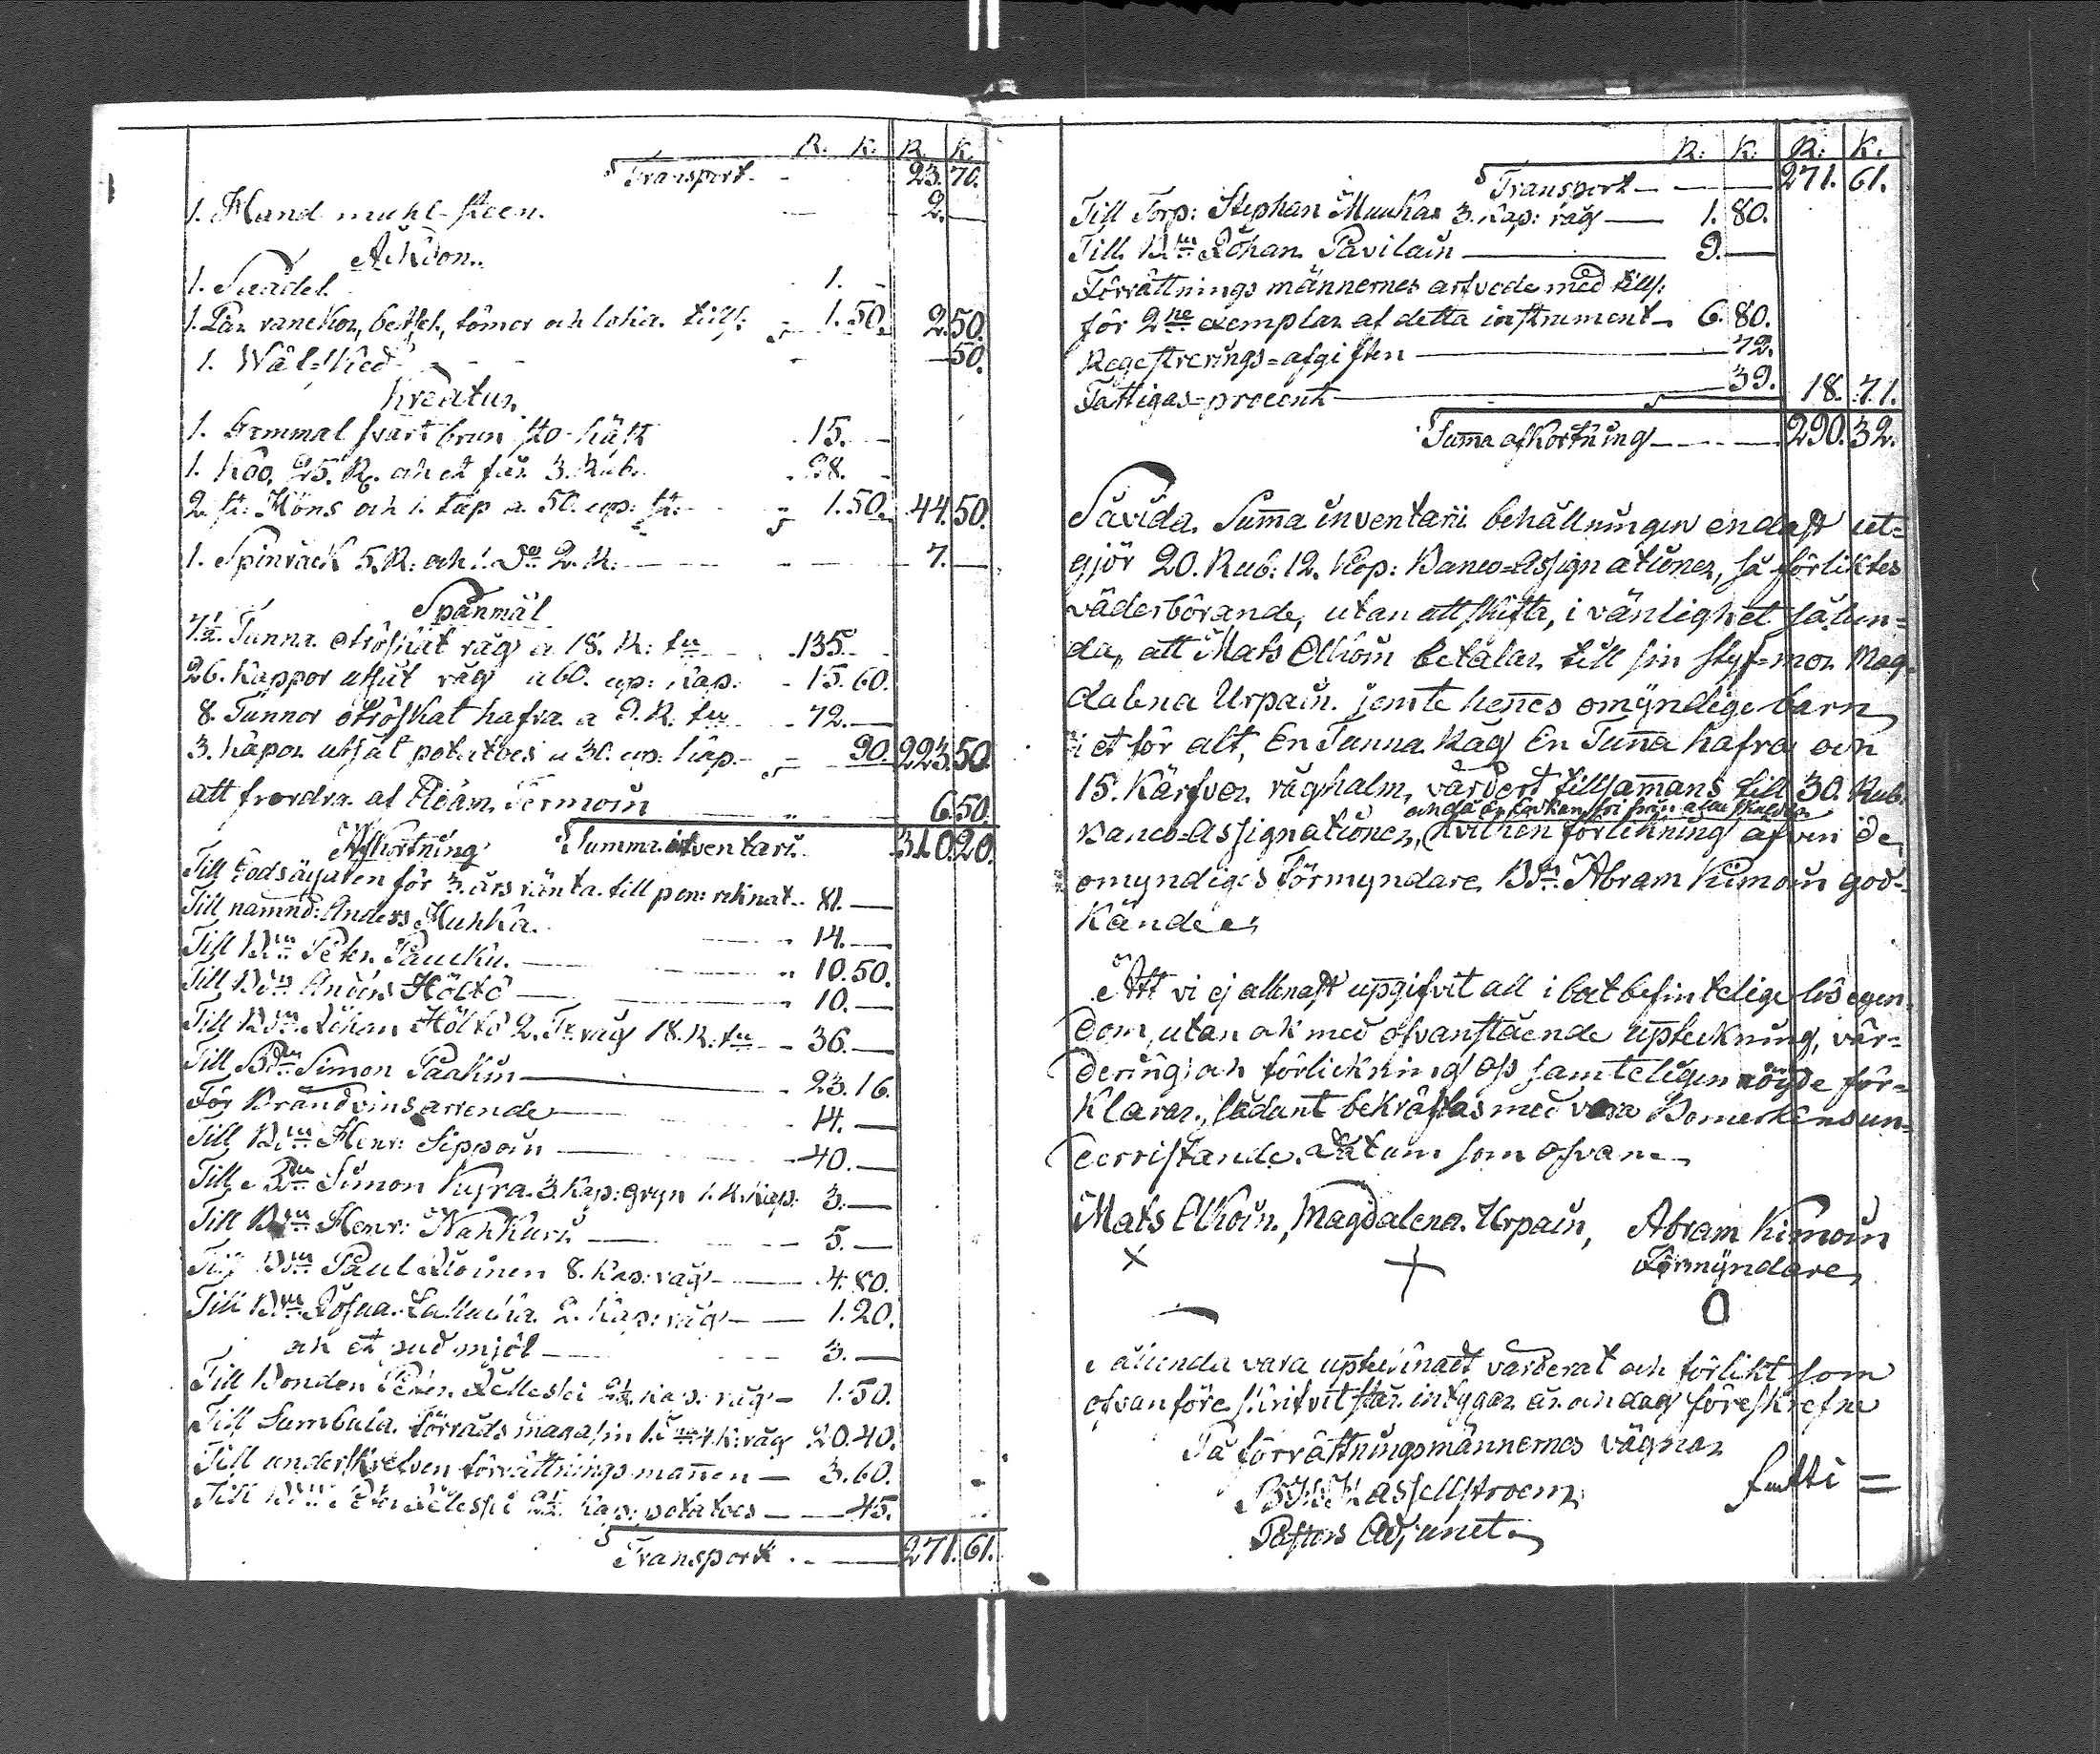 R. K. R. K.
Transport 23. 70.
1. Hand muhl-steen. 2.
Åkdon.
1. Saadel 1.
1. Par rancKor, betsel, tömor och loka. tills: 1.50. 2.50.
1. Wål 50.
Kreatur
1. Gammal svart brun sto-häst 15.
1. Koo, 25. R. och et får 3. Rub. 28.
2. st: Höns och 1. tup a 50. cop: st: 1.50. 44.50.
1. Spinråck 5. R: och 1. Do 2. R: 7.
Spanmål
7½ Tunna otröskat råg a 18. R: tn 135.
26. Kappor utsåt råg a 60. cop: Kap: 15.60.
8. Tunnor otröskat hafra a 9. R. tn 72.
3. Kapor utsåt potatoes a 30. cop: kap. 90. 223.50.
att fordra af Adam Termoin 6.50.
Afkortning Summa inventarii 310.20.
Till Godsägaren för 3. års ränta till pen: räknat 81.
Till nämnd: Anders Huhka. 14.
Till Bdn Petr. Paucku. 10.50.
Till Bdn Anders Höltö 10.
Till Bdn Johan Höltö 2. Tr råg 18. R. tn 36.
Till Bdn Simon Paakin 23.16.
För Brändvins arrende 14.
Till Bdn Henr: Sippoin 40.
Till Bdn Simon Kupra. 3. Kap: gryn 1. R. Kap: 3.
Till Bdn Henr: Nakkari 5.
Till Bdn Paul 8. Kap: råg 4.80.
Till Bdn Josua. 2. Kap: råg 1.20.
ock et pud mjöl 3.
Till Bonden Peter 2½ Kap: råg 1.50.
Till Sumbula förråds magasin råg 20.40.
Till underskrefven förrättnings mannen 3.60.
Till Bdn Petr 2½ Kap: potatoes 45.
Transport 271. 61.
R. K. R. K.
Transport 271. 61.
Till Torp: Stephan Muukas 3. Kap: råg 1. 80.
Till Bdn Johan Pavilain 9.
Förrättnings männernes arfvode med tills:
för 2ne exemplar af detta instrument 6. 80.
Regestrerings=afgiften 72.
Fattigas=procent 39. 18. 71.
Summa afkortning 290. 32.
Såvida Summa inventarii behållningen endast ut=
gjör 20. Rub: 12. Kop: Banco=Assignationer, så förliktes
väderbörande, utan att skifta, i vänlighet sålun=
da, att Mats Olkoin betalar till sin styf=mor Mag=
dalena Urpain jemte hennes omyndige barn
i et för alt, En Tunna Råg En Tunna hafra och
15. Kärfver råghalm, värdert tillsamans till 30. Rub.
Banco=Assignationer, hvilken förlikning äfven de
omyndiges Förmyndare, Bdn Abram Kimoin god=
kände
Att vi ej allenast upgifvit all i boet befintelige lösegen=
dom, utan ock med ofvanstående upteckning, vär=
dering och förlickning oss samteligen nöjde för=
klarar, sådant bekräftas med vara Bomerkens un=
derristande. Datum som ofvan
Mats Olkoin, Magdalena Urpain, Abram Kimoin
X + Förmyndare
O
vara uptecknadt värderat och förlikt som
ofvanföre skrifvit står, intygar år och dag föreskrefne
På förrättningsmännernes vägnar
Hassellstroem
Pastors Adjunct